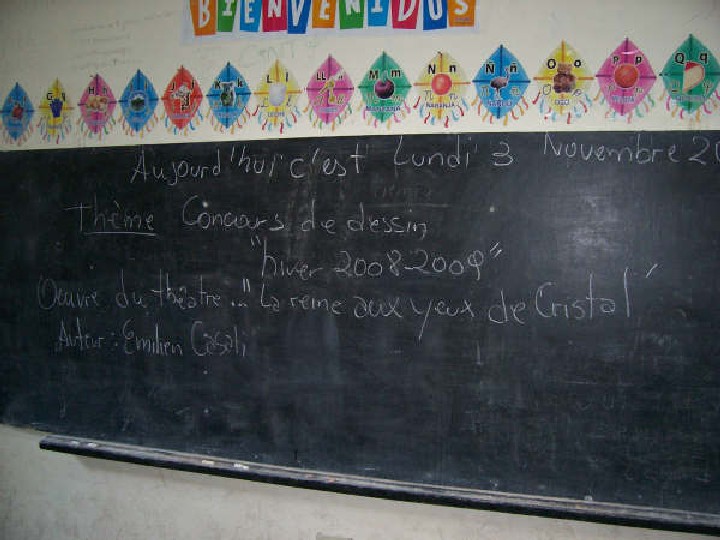 BIENVENIDOS
G
H n
J j
K k
L l
LL ll
M m
N n
Ñ ñ
O o
P p
Q q
NARANJA
Aujourd'hui c'est Lundi 3 Novembre 20
Thème Concours de dessin
"hiver 2008-2009"
Oeuvre du théâtre.. "La reine aux yeux de Cristal"
Auteur : Emilien Casali